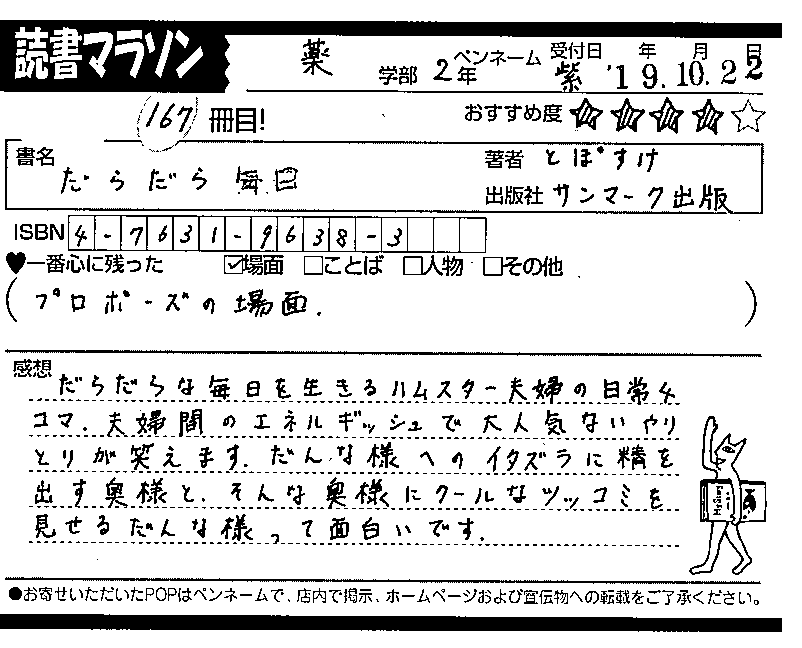 読書マラソン
薬 学部 2年 ペンネーム 紫 受付日 '19年.10月.22日
167 冊目!
おすすめ度 ★★★★☆
書名 だらだら毎日
著者 とぼすけ
出版社 サンマーク出版
ISBN 4-7631-9638-3
♥一番心に残った ☑場面 □ことば □人物 □その他
(プロポーズの場面.)
感想 だらだらな毎日を生きるハムスター夫婦の日常4
コマ.夫婦間のエネルギッシュで大人気ないやり
とりが笑えます.だんな様へのイタズラに精を
出す奥様と、そんな奥様にクールなツッコミを
見せるだんな様って面白いです.
●お寄せいただいたPOPはペンネームで、店内で掲示、ホームページおよび宣伝物への転載をご了承ください。